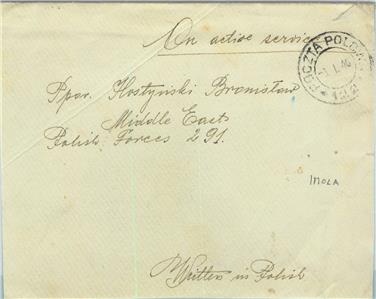 On active service
POCZTA POLOWA
Ppor. Kostyński Bronisław
Middle East
Polish Forces 291.
IMOLA
Written in Polish